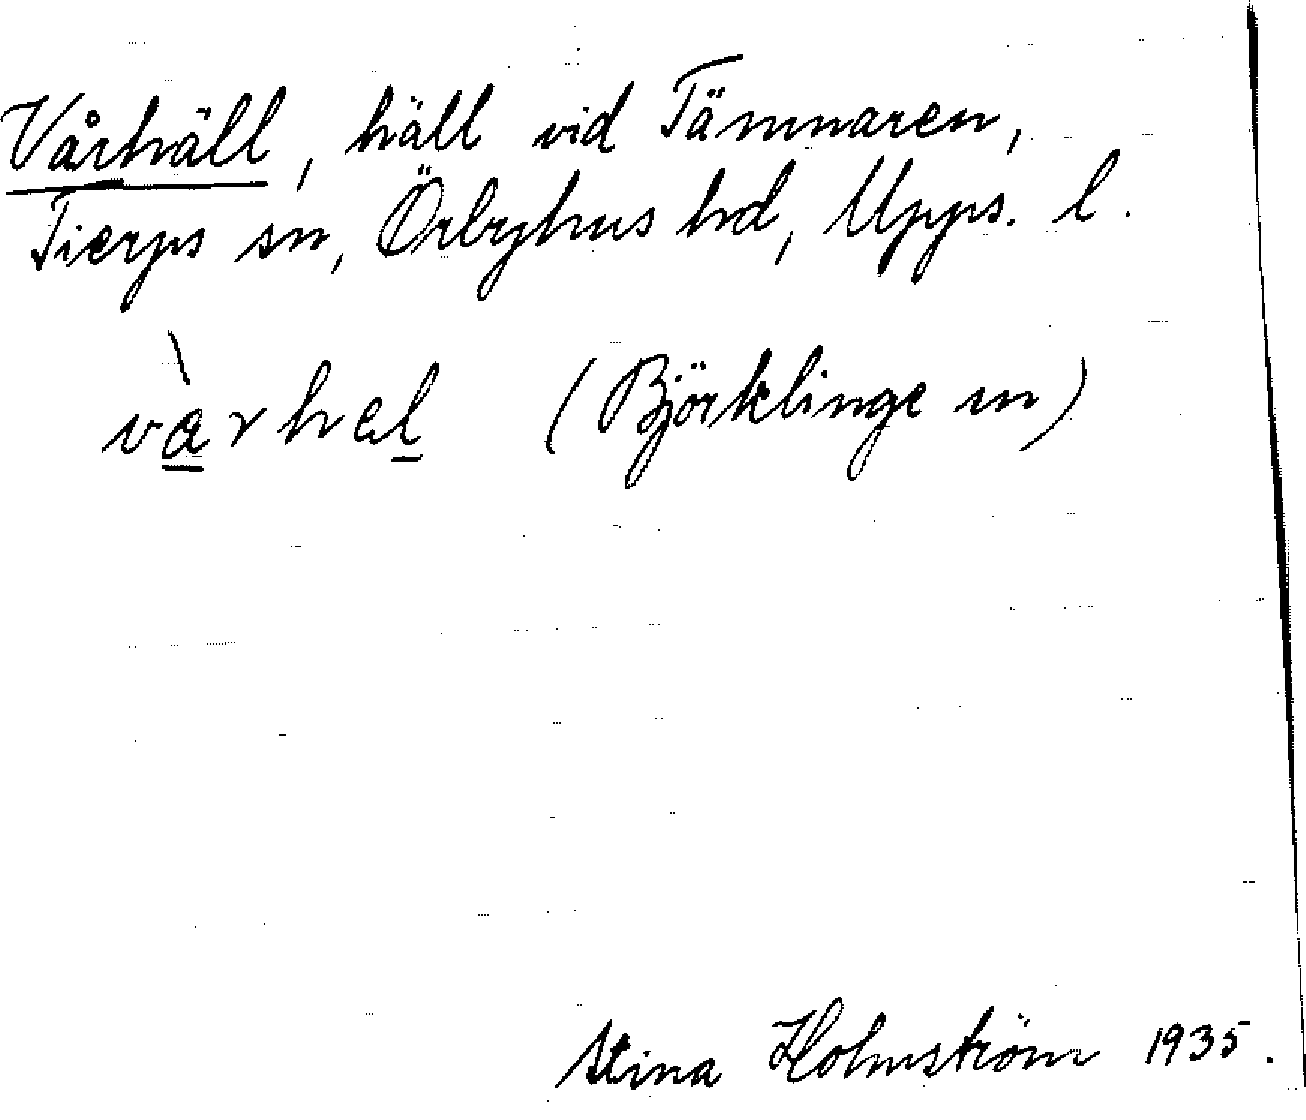 Vårhäll, häll vid Tämnaren,
Tierps sn, Örbyhus hd, Upps. l.
vàrhel (Björklinge sn)
Stina Holmström 1935.